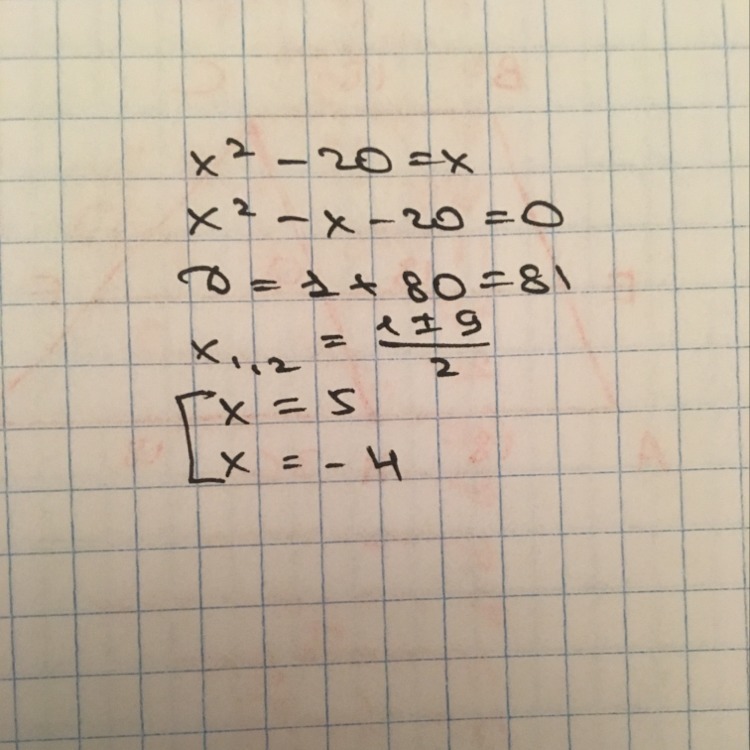 x² - 20 = x
x² - x - 20 = 0
D = 1 + 80 = 81
x₁,₂ = (1 ± 9)/2
[x = 5
x = -4